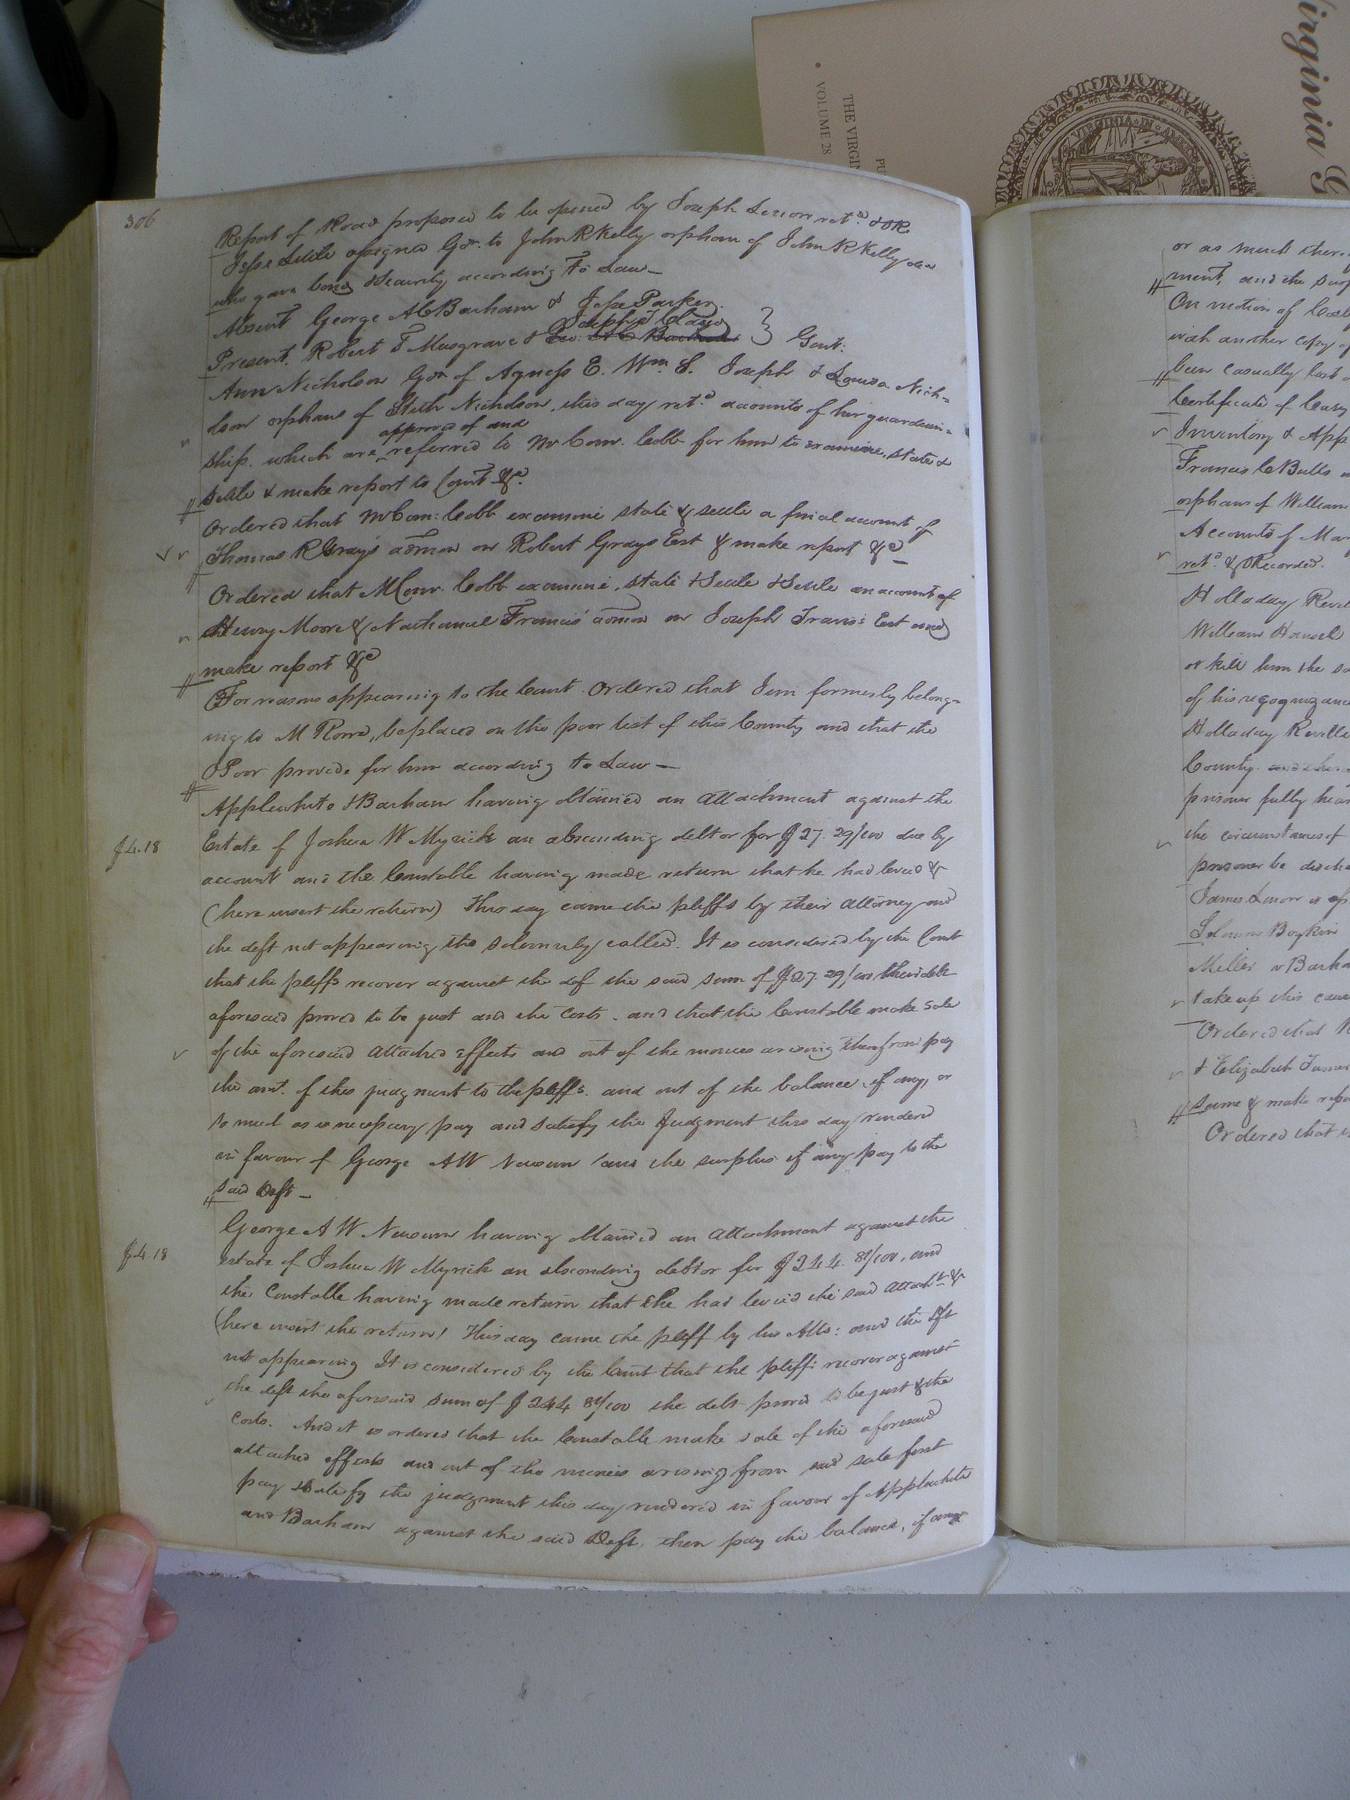 Virginia G
THE VIRGIN
VOLUME 28
PU
VIRGINIA
306
Report of Road proposed to be opened by Joseph ret.d & OR
Jesse Little assigned Gdn. to John R Kelly orphan of John R Kelly dec
who gave bond & security according To Law—
Absent George A C Barham & Jesse Parker.
Joseph T Claud
Present. Robert T Musgrave & Geo: A C Barham } Gent.
Ann Nicholson Gdn of Agness E. Wm S. Joseph & Louisa Nich=
lson orphans of Stith Nicholson, this day ret.d accounts of her guardian=
approved of and
ship. which are referred to Mr Com. Cobb for him to examine, state &
settle & make report to Court &c.
Ordered that Mr Com: Cobb examine state & settle a final account of
Thomas R Gray's admon on Robert Grays Est & make report &c—
Ordered that M Com. Cobb examine, state & Settle & Settle an account of
Henry Moore & Nathaniel Francis' admon on Joseph Travis Est and
make report &c
For reasons appearing to the Court. Ordered that Jim formerly belong=
ing to M Rowe, be placed on the poor list of this County and that the
O Poor provide for him according to Law—
Applewhite & Barham having obtained an Attachment against the
$4.18
Estate of Joshua W Myrick an absconding debtor for $27.29/100 due by
account and the Constable having made return that he had levied &
(here insert the return) This day came the pltffs by their Attorney and
the deft not appearing tho solemnly called. It is considered by the Court
that the pltffs recover against the def the said sum of $27.29/100 their debt
aforesaid proved to be just and the Costs. and that the Constable make Sale
of the aforesaid attached effects and out of the monies arising therefrom pay
the amt. of this judgment to the pltffs. and out of the balance, if any, or
so much as is necessary pay and satisfy the Judgment this day rendered
in favour of George A W Newsom and the surplus if any pay to the
said Deft—
George A W Newsom having obtained an Attachment against the
$4.18
estate of Joshua W Myrick an absconding debtor for $244.81/100, and
the Constable having made return that he had levied the said Attacht &
(here insert the return) This day came the pltff by his Atto: and the Dft
not appearing It is considered by the Court that the pltff recover against
the deft the aforesaid sum of $244 81/100 the debt proved to be just & the
costs. And it is ordered that the Constable make sale of the aforesaid
attached effects and out of the monies arising from said sale first
pay & satisfy the judgment this day rendered in favour of Applewhite
and Barham against the said Deft. then pay the balance, if any
or as much there
ment, and the surp
On motion of
with another Copy of
been casually lost
Certificate of
Inventory & App
Francis C Butts
orphans of William
Accounts of Mar
ret.d & ORecorded.
Holladay Revel
William Howel
or kill him the sa
of his recognizance
Holladay Revell
County.
prisoner fully hear
the circumstances of
prisoner be discha
James is ap
Solomon Boykin
Miller v Barha
take up this cause
Ordered that
& Elizabeth Turner
same & make repo
Ordered that